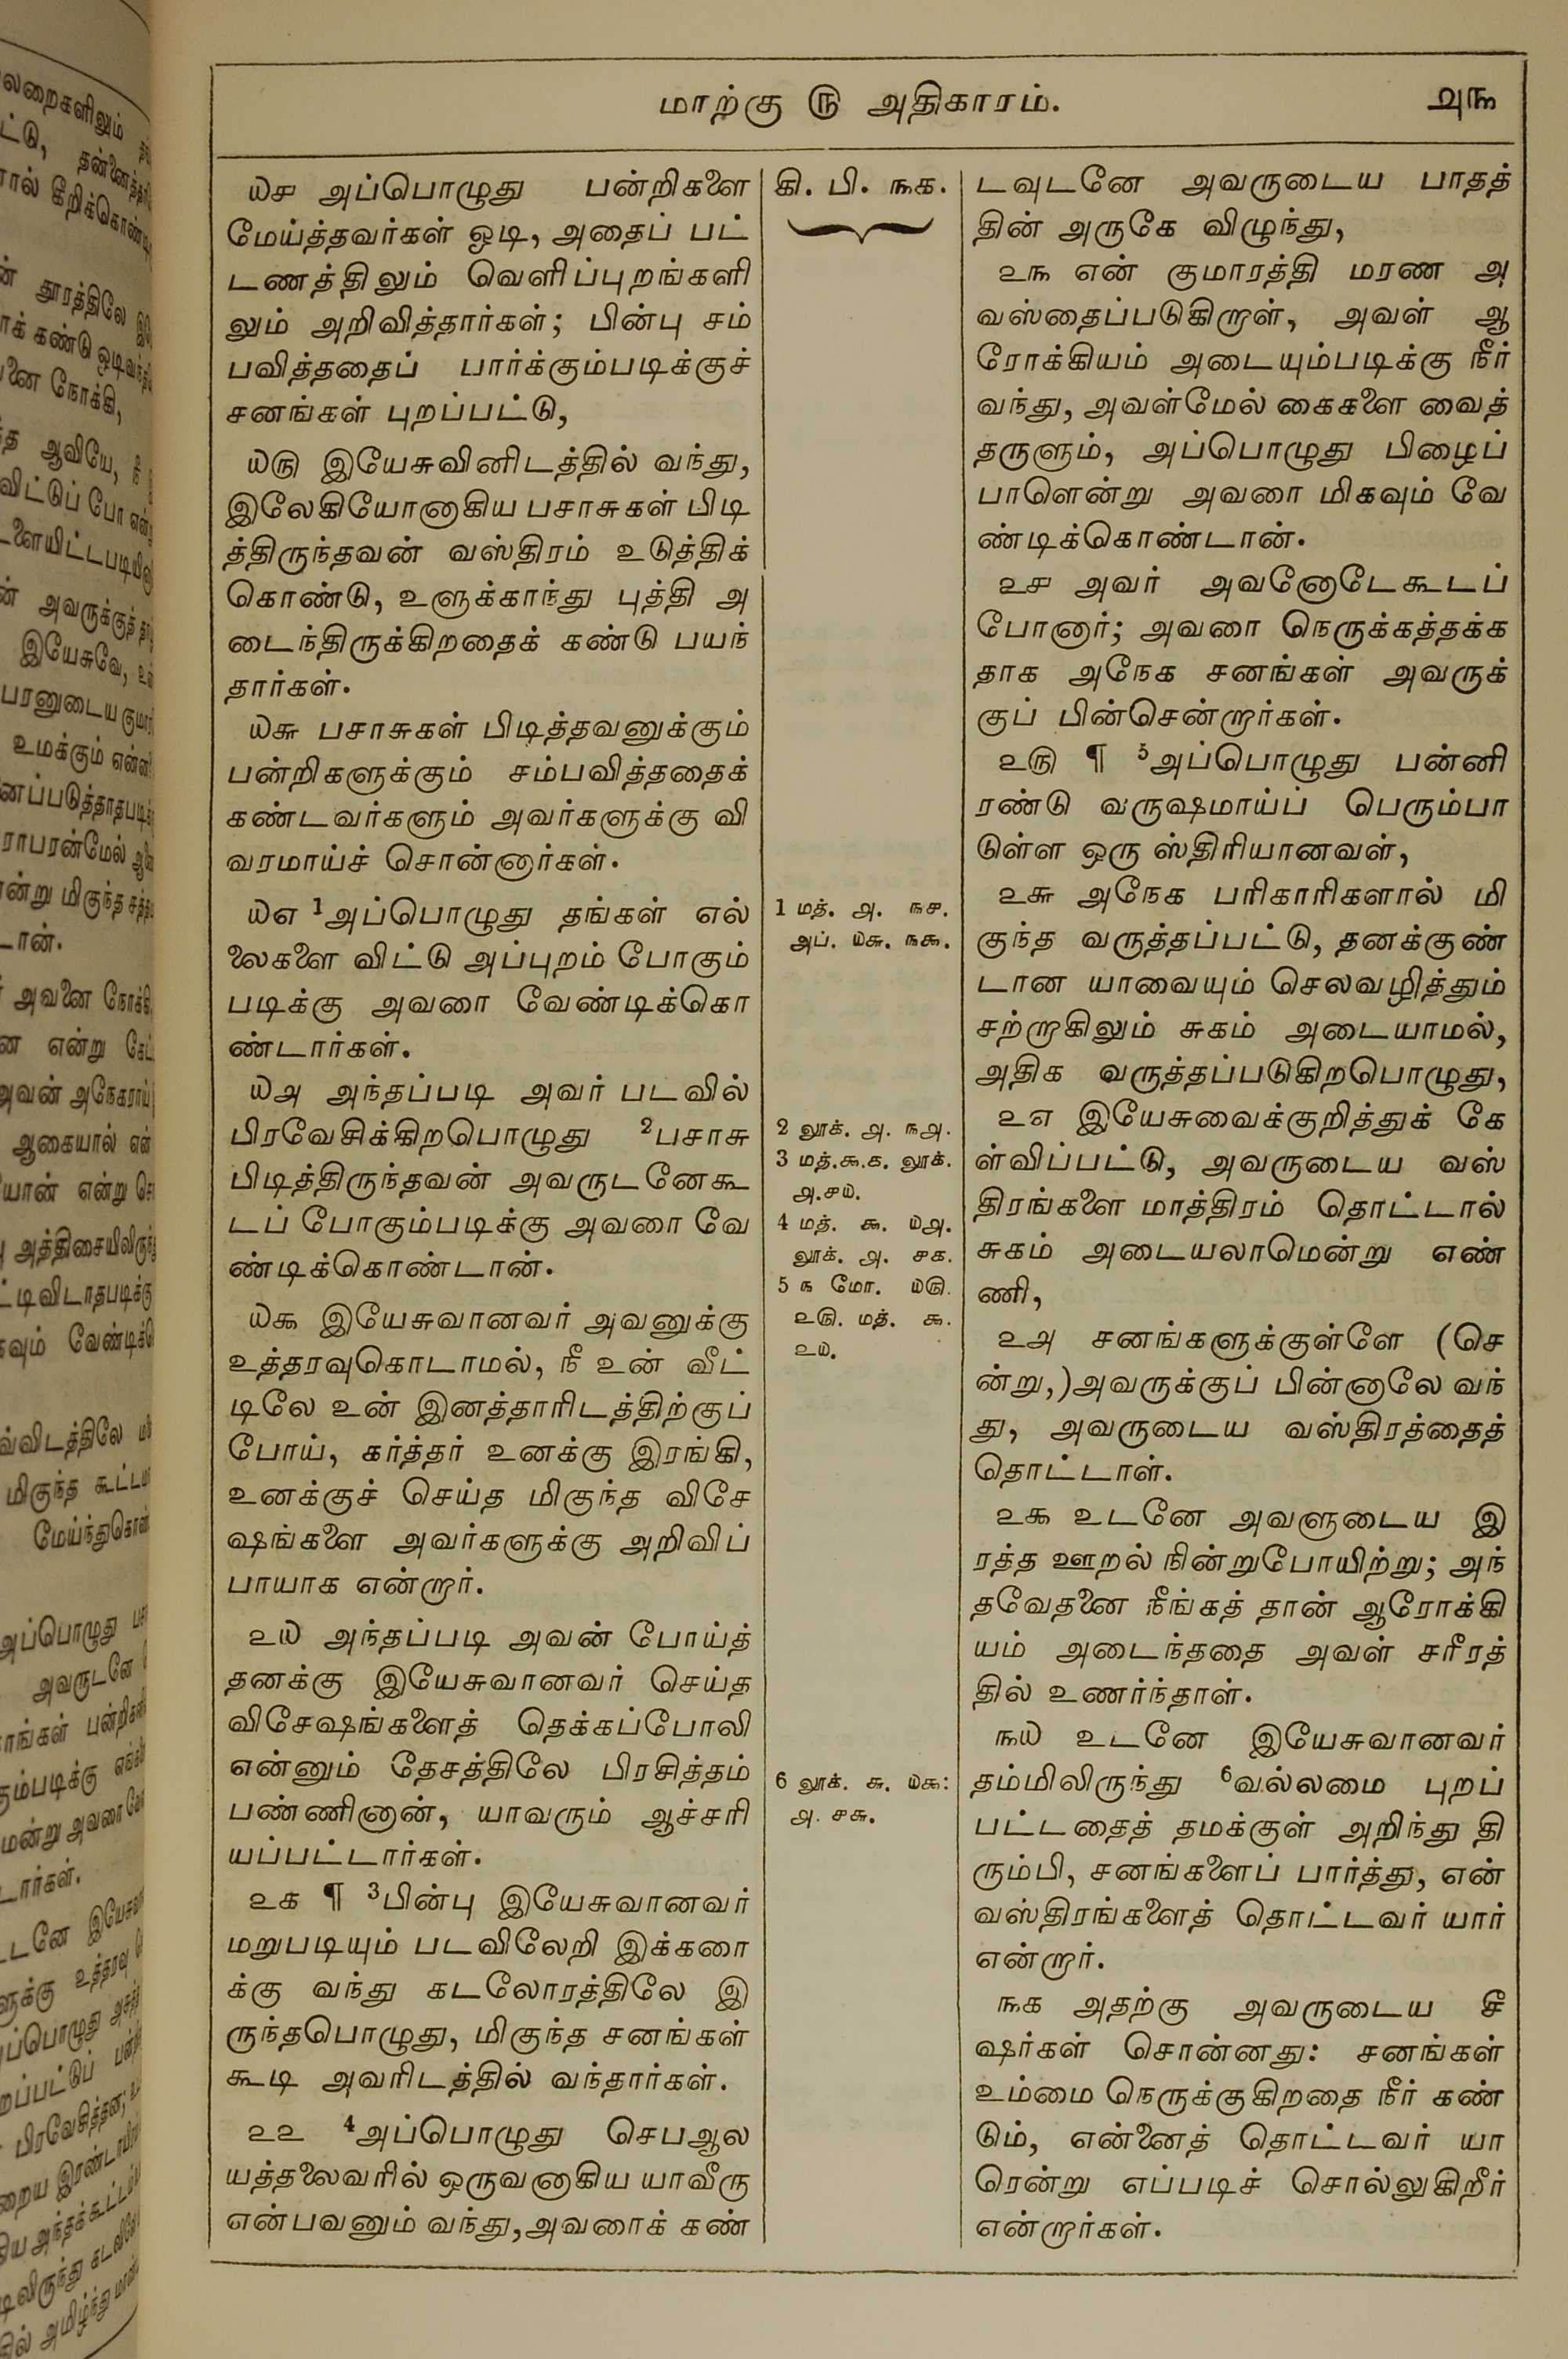 மாற்கு ௫ அதிகாரம்.
௮௩
௰௪ அப்பொழுது பன்றிகளை
மேய்த்தவர்கள் ஓடி, அதைப் பட்
டணத்திலும் வெளிப்புறங்களி
லும் அறிவித்தார்கள்; பின்பு சம்
பவித்ததைப் பார்க்கும்படிக்குச்
சனங்கள் புறப்பட்டு,
௰௫ இயேசுவினிடத்தில் வந்து,
இலேகியோனாகிய பசாசுகள் பிடி
த்திருந்தவன் வஸ்திரம் உடுத்திக்
கொண்டு, உளுக்காந்து புத்தி அ
டைந்திருக்கிறதைக் கண்டு பயந்
தார்கள்.
௰௬ பசாசுகள் பிடித்தவனுக்கும்
பன்றிகளுக்கும் சம்பவித்ததைக்
கண்டவர்களும் அவர்களுக்கு வி
வரமாய்ச் சொன்னார்கள்.
௰௭ 1அப்பொழுது தங்கள் எல்
லைகளை விட்டு அப்புறம் போகும்
படிக்கு அவரை வேண்டிக்கொ
ண்டார்கள்.
௰௮ அந்தப்படி அவர் படவில்
பிரவேசிக்கிறபொழுது 2பசாசு
பிடித்திருந்தவன் அவருடனேகூ
டப் போகும்படிக்கு அவரை வே
ண்டிக்கொண்டான்.
௰௯ இயேசுவானவர் அவனுக்கு
உத்தரவுகொடாமல், நீ உன் வீட்
டிலே உன் இனத்தாரிடத்திற்குப்
போய், கர்த்தர் உனக்கு இரங்கி,
உனக்குச் செய்த மிகுந்த விசே
ஷங்களை அவர்களுக்கு அறிவிப்
பாயாக என்றார்.
௨௰ அந்தப்படி அவன் போய்த்
தனக்கு இயேசுவானவர் செய்த
விசேஷங்களைத் தெக்கப்போலி
என்னும் தேசத்திலே பிரசித்தம்
பண்ணினான், யாவரும் ஆச்சரி
யப்பட்டார்கள்.
௨௧ ¶ 3பின்பு இயேசுவானவர்
மறுபடியும் படவிலேறி இக்கரை
க்கு வந்து கடலோரத்திலே இ
ருந்தபொழுது, மிகுந்த சனங்கள்
கூடி அவரிடத்தில் வந்தார்கள்.
௨௨ 4அப்பொழுது செபஆல
யத்தலைவரில் ஒருவனாகிய யாவீரு
என்பவனும் வந்து,அவரைக் கண்
கி. பி. ௩௧.
1 மத். ௮. ௩௪.
அப். ௰௬. ௩௯.
2 லூக். ௮. ௩௮.
3 மத்.௯.௧. லூக்.
௮.௪௰.
4 மத். ௯. ௰௮.
லூக். ௮. ௪௧.
5 ௩ மோ. ௰௫.
௨௫. மத். ௯.
௨௰.
6 லூக். ௬. ௰௯:
௮. ௪௬.
டவுடனே அவருடைய பாதத்
தின் அருகே விழுந்து,
௨௩ என் குமாரத்தி மரண அ
வஸ்தைப்படுகிறாள், அவள் ஆ
ரோக்கியம் அடையும்படிக்கு நீர்
வந்து, அவள்மேல் கைகளை வைத்
தருளும், அப்பொழுது பிழைப்
பாளென்று அவரை மிகவும் வே
ண்டிக்கொண்டான்.
௨௪ அவர் அவனோடேகூடப்
போனார்; அவரை நெருக்கத்தக்க
தாக அநேக சனங்கள் அவருக்
குப் பின்சென்றார்கள்.
௨௫ ¶ 5அப்பொழுது பன்னி
ரண்டு வருஷமாய்ப் பெரும்பா
டுள்ள ஒரு ஸ்திரியானவள்,
௨௬ அநேக பரிகாரிகளால் மி
குந்த வருத்தப்பட்டு, தனக்குண்
டான யாவையும் செலவழித்தும்
சற்றாகிலும் சுகம் அடையாமல்,
அதிக வருத்தப்படுகிறபொழுது,
௨௭ இயேசுவைக்குறித்துக் கே
ள்விப்பட்டு, அவருடைய வஸ்
திரங்களை மாத்திரம் தொட்டால்
சுகம் அடையலாமென்று எண்
ணி,
௨௮ சனங்களுக்குள்ளே (செ
ன்று,)அவருக்குப் பின்னாலே வந்
து, அவருடைய வஸ்திரத்தைத்
தொட்டாள்.
௨௯ உடனே அவளுடைய இ
ரத்த ஊறல் நின்றுபோயிற்று; அந்
தவேதனை நீங்கத் தான் ஆரோக்கி
யம் அடைந்ததை அவள் சரீரத்
தில் உணர்ந்தாள்.
௩௰ உடனே இயேசுவானவர்
தம்மிலிருந்து 6வல்லமை புறப்
பட்டதைத் தமக்குள் அறிந்து தி
ரும்பி, சனங்களைப் பார்த்து, என்
வஸ்திரங்களைத் தொட்டவர் யார்
என்றார்.
௩௧ அதற்கு அவருடைய சீ
ஷர்கள் சொன்னது: சனங்கள்
உம்மை நெருக்குகிறதை நீர் கண்
டும், என்னைத் தொட்டவர் யா
ரென்று எப்படிச் சொல்லுகிறீர்
என்றார்கள்.